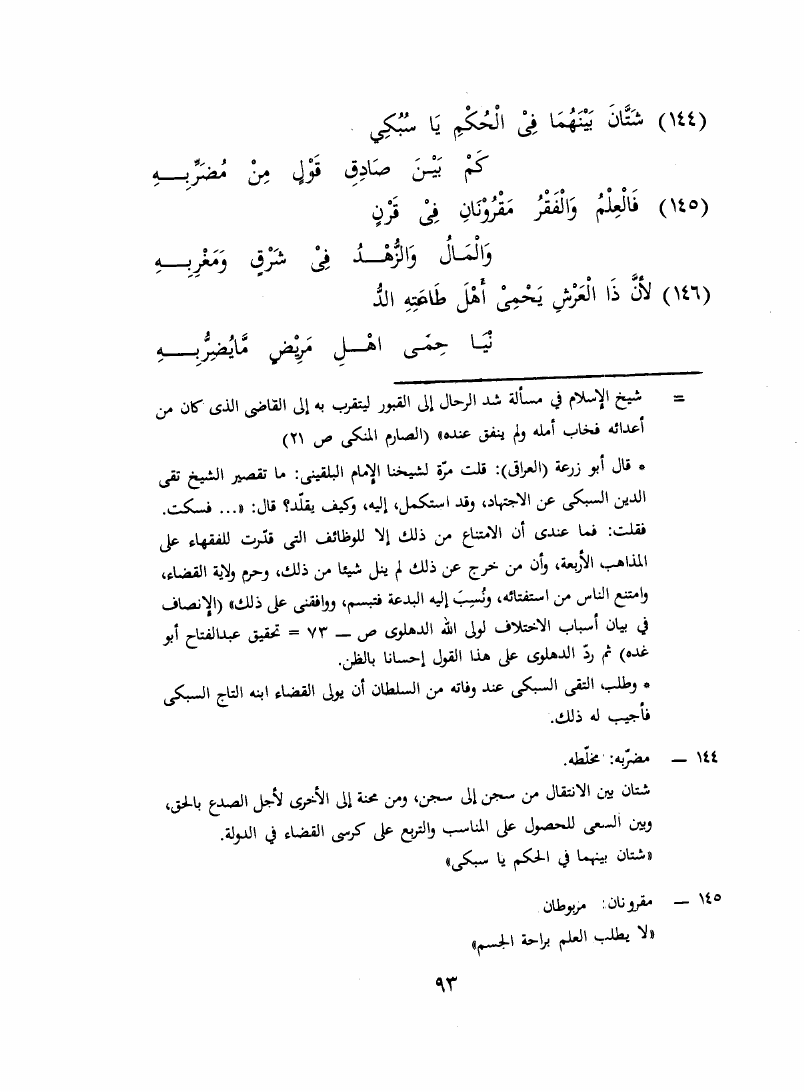 (١٤٤) شَتَّانَ بَيْنَهُمَا فِىْ الْحُكْمِ يَا سُبْكِي
كَمْ بَيْـنَ صَادِقِ قَوْلٍ مِنْ مُضَرِّبِـــهِ
(١٤٥) فَالْعِلْمُ وَالْفَقْرُ مَقْرُوْنَانِ فِىْ قَرْنٍ
وَالْمَـالُ وَالزُّهْـــدُ فِىْ شَرْقٍ وَمَغْرِبِـــهِ
(١٤٦) لأنَّ ذَا الْعَرْشِ يَحْمِىْ أَهْلَ طَاعَتِهِ الدُّ
نْيَـا حِمَّـى اهْــلِ مَرِيْضٍ مَّايُضِرُّبِـــهِ
= شيخ الإسلام في مسألة شد الرحال إلى القبور ليتقرب به إلى القاضى الذى كان من
أعدائه فخاب أمله ولم ينفق عنده» (الصارم المنكى ص ٢١)
* قال أبو زرعة (العراقى): قلت مرّة لشيخنا الإمام البلقينى: ما تقصير الشيخ تقى
الدين السبكى عن الاجتهاد، وقد استكمل، إليه، وكيف يقلّد؟ قال: «... فسكت.
فقلت: فما عندى أن الامتناع من ذلك إلا للوظائف التى قدّرت للفقهاء على
المذاهب الأربعة، وأن من خرج عن ذلك لم ينل شيئا من ذلك، وحرم ولاية القضاء،
وامتنع الناس من استفتائه، ونُسِبَ إليه البدعة فتبسم، ووافقنى على ذلك» (الإنصاف
في بيان أسباب الاختلاف لولى الله الدهلوى ص — ٧٣ = تحقيق عبدالفتاح أبو
غده) ثم ردّ الدهلوى على هذا القول إحسانا بالظن.
* وطلب التقى السبكى عند وفاته من السلطان أن يولى القضاء ابنه التاج السبكى
فأجيب له ذلك.
١٤٤ — مضرّبه: مخلّطه.
شتان بين الانتقال من سجن إلى سجن، ومن محنة إلى الأخرى لأجل الصدع بالحق،
وبين السعى للحصول على المناسب والتربع على كرسى القضاء في الدولة.
«شتان بينهما في الحكم يا سبكى»
١٤٥ — مقرونان: مربوطان
«لا يطلب العلم براحة الجسم»
٩٣